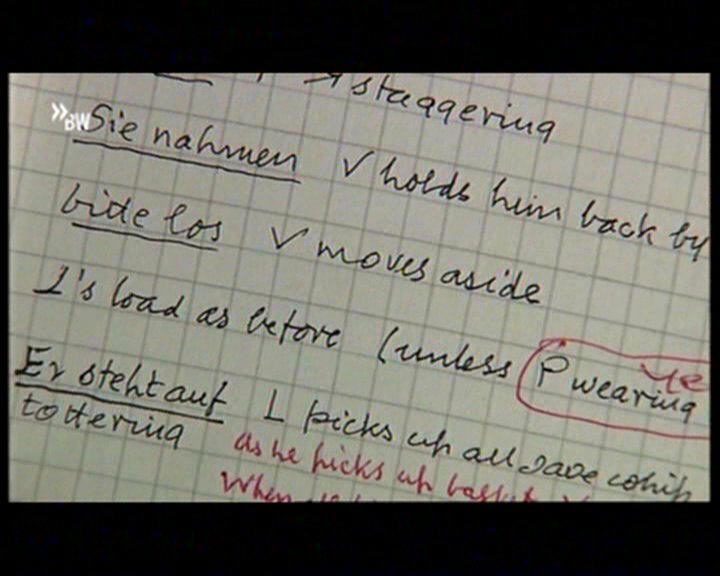 staggering
»BW
Sie nahmen V holds him back by
bitte los V moves aside
L's load as before (unless P wearing
Er steht auf L picks up all save whip
tottering
as he picks up basket
When